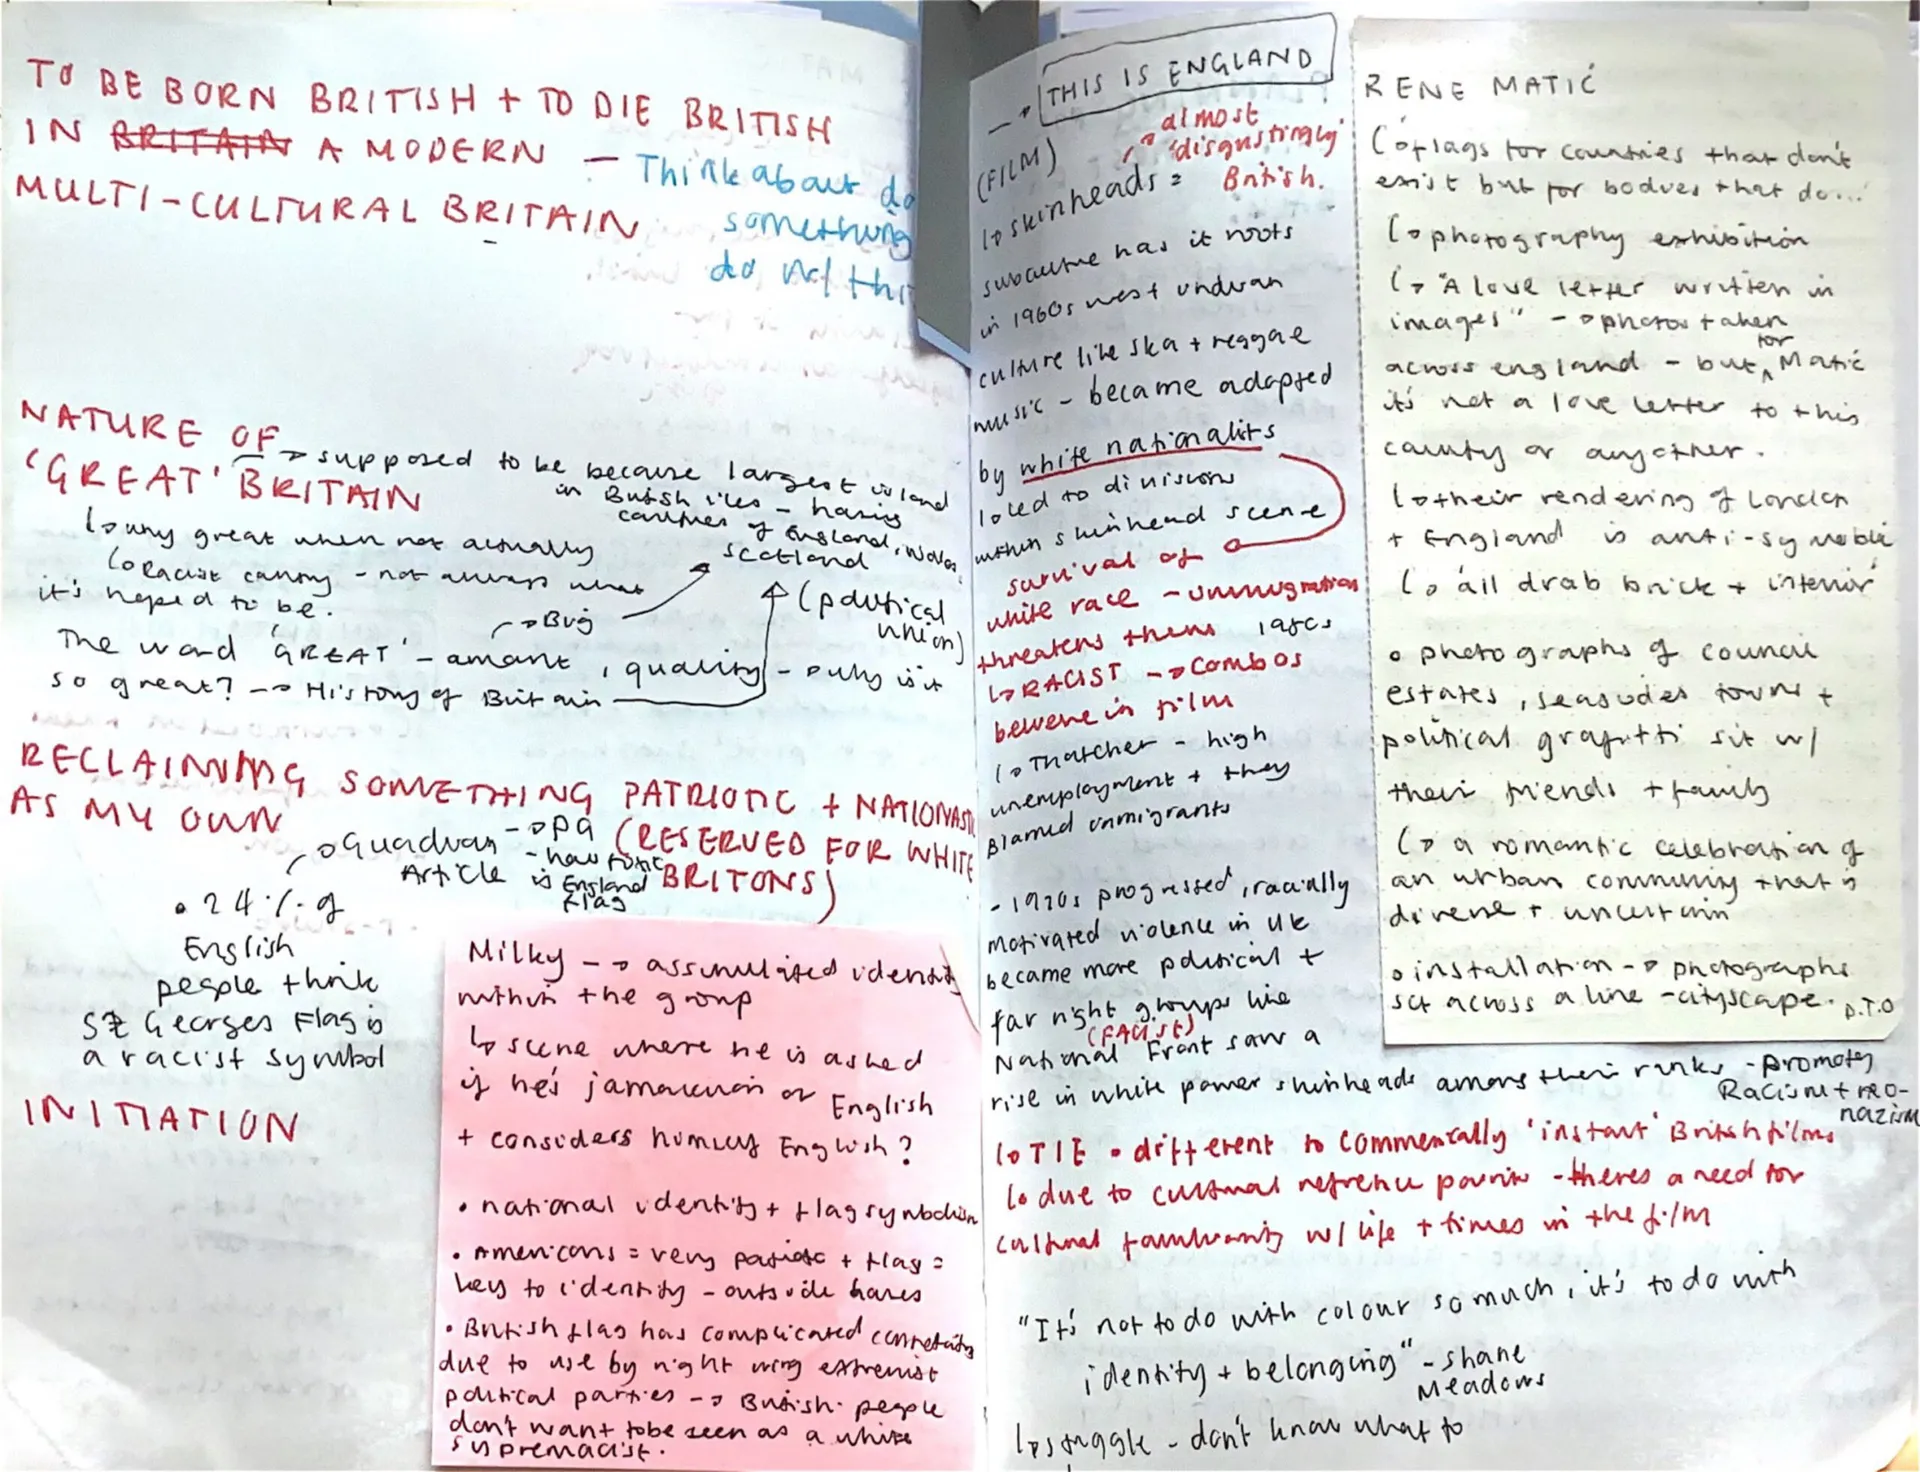 TO BE BORN BRITISH + TO DIE BRITISH
IN BRITAIN A MODERN —
MULTI-CULTURAL BRITAIN
Think about do
something
do w/ thi
NATURE OF
'GREAT' BRITAIN
→ supposed to be because largest island
in British isles - having
countries of England, Wales,
Scotland
(political
union)
↳ why great when not actually
↳ Racist country - not always what
it's hoped to be.
→ Big
The word 'GREAT' - amount, quality - why is it
so great? → History of Britain
RECLAIMING SOMETHING PATRIOTIC + NATIONAST
AS MY OWN
(RESERVED FOR WHITE
BRITONS)
→ Guardian → pg
Article - how toxic
is England
flag
• 24% of
English
people think
St Georges Flag is
a racist symbol
INITIATION
Milky → assimilated identity
within the group
↳ scene where he is asked
if he's jamaican or English
+ considers himself English?
• national identity + flag symbolism
• Americans = very patriotic + flag =
key to identity - outside homes
• British flag has complicated
due to use by right wing extremist
political parties → British people
don't want to be seen as a white
supremacist.
→ THIS IS ENGLAND
(FILM)
→ almost
'disgustingly'
British.
↳ skinheads =
subculture has it roots
in 1960s west indian
culture like ska + reggae
music - became adopted
by white nationalits
↳ led to divisions
within skinhead scene
survival of
white race - immigration
threatens them 1980s
↳ RACIST → Combos
beliefs in film
↳ Thatcher - high
unemployment + they
Blamed immigrants
- 1970s progressed, racially
motivated violence in UK
became more political +
far right groups like
(FACIST)
National Front saw a
rise in white power skinheads among their ranks - promotes
Racism + neo-
nazism
↳ TIE • different to commercially 'instant' British films
↳ due to cultural refrence points - theres a need for
cultural familiarity w/ life + times in the film
"It's not to do with colour so much, it's to do with
identity + belonging" - Shane
Meadows
↳ struggle - don't know what to
RENE MATIĆ
↳ flags for countries that don't
exist but for bodies that do...
↳ photography exhibition
↳ "A love letter written in
images" → photos taken
across england - but for Matić
it's not a love letter to this
country or any other.
↳ their rendering of London
+ England is anti-symbolic
↳ all drab brick + interior
• photographs of council
estates, seasides towns +
political grafitti sit w/
their friends + family
↳ a romantic celebration of
an urban community that is
diverse + uncertain
• installation → photographs
set across a line - cityscape. P.T.O